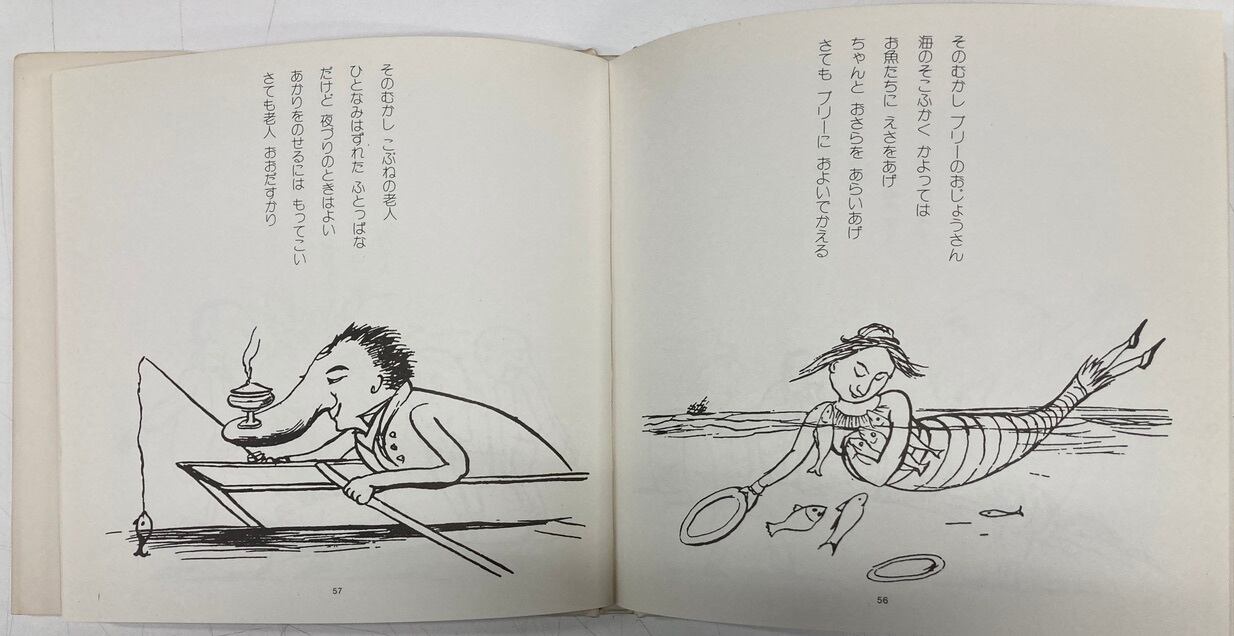 そのむかし ブリーのおじょうさん
海のそこふかく かよっては
お魚たちに えさをあげ
ちゃんと おさらを あらいあげ
さても ブリーに およいでかえる
56
そのむかし こぶねの老人
ひとなみはずれた ふとっぱな
だけど 夜づりのときはよい
あかりをのせるには もってこい
さても老人 おおだすかり
57